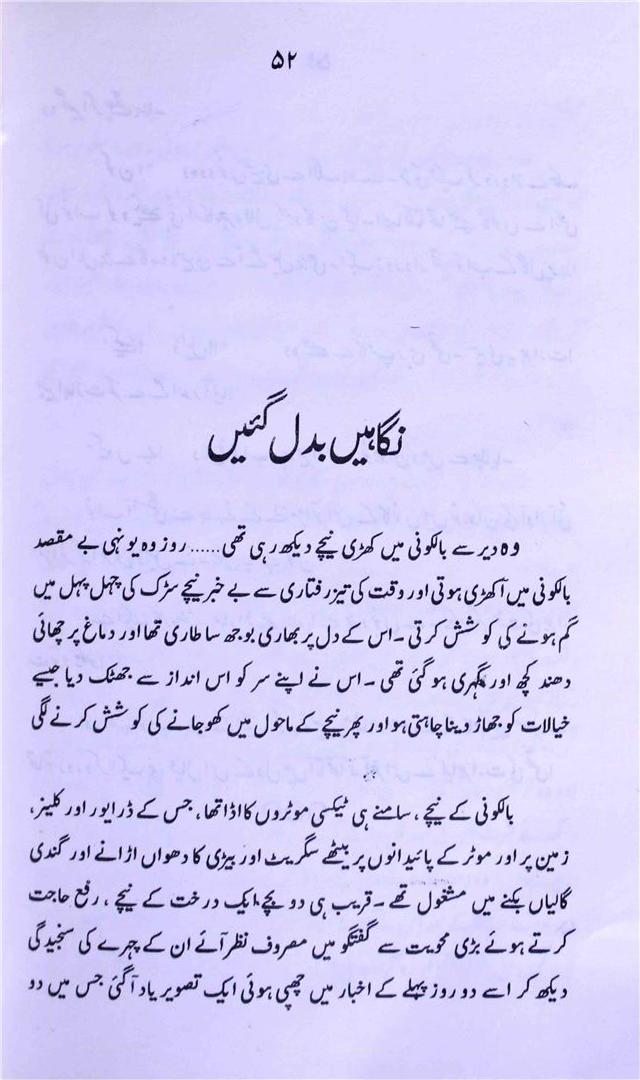 ۵۲
نگاہیں بدل گئیں
وہ دیر سے بالکونی میں کھڑی نیچے دیکھ رہی تھی...... روز وہ یونہی بے مقصد
بالکونی میں آ کھڑی ہوتی اور وقت کی تیز رفتاری سے بے خبر نیچے سڑک کی چہل پہل میں
گم ہونے کی کوشش کرتی ۔ اس کے دل پر بھاری بوجھ سا طاری تھا اور دماغ پر چھائی
دھند کچھ اور گہری ہو گئی تھی ۔ اس نے اپنے سر کو اس انداز سے جھٹک دیا جیسے
خیالات کو جھاڑ دینا چاہتی ہو اور پھر نیچے کے ماحول میں کھو جانے کی کوشش کرنے لگی
بالکونی کے نیچے ، سامنے ہی ٹیکسی موٹروں کا اڈا تھا ، جس کے ڈرایور اور کلینر،
زمین پر اور موٹر کے پائیدانوں پر بیٹھے سگریٹ اور بیڑی کا دھواں اڑانے اور گندی
گالیاں بکنے میں مشغول تھے ۔ قریب ہی دو بچے ایک درخت کے نیچے ، رفع حاجت
کرتے ہوئے بڑی محویت سے گفتگو میں مصروف نظر آئے ان کے چہرے کی سنجیدگی
دیکھ کر اسے دو روز پہلے کے اخبار میں چھپی ہوئی ایک تصویر یاد آ گئی جس میں دو